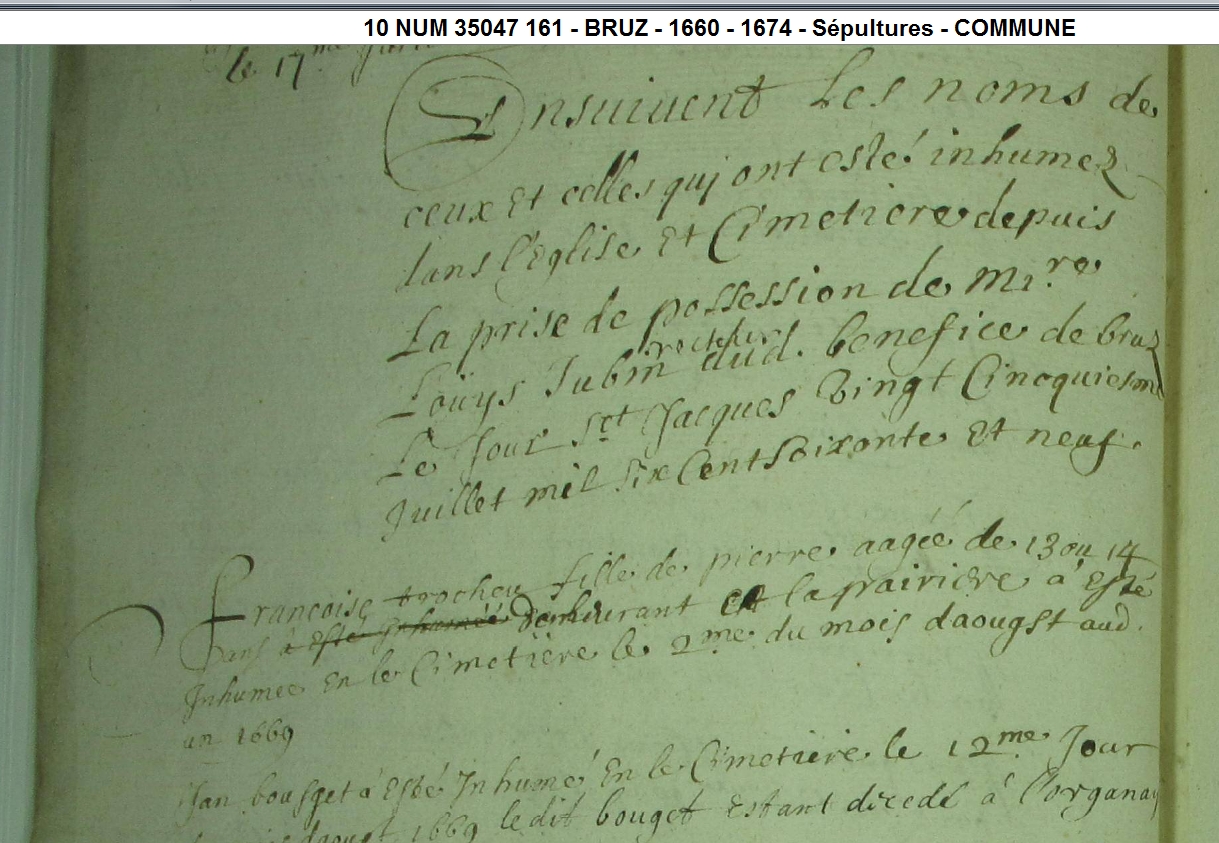 10 NUM 35047 161 - BRUZ - 1660 - 1674 - Sépultures - COMMUNE
le 17me
Ensuiuent Les noms de
ceux Et celles qui ont esté inhumez
dans l'Eglise Et Cimetiere depuis
La prise de possession de Mi.re
recteur
Louys Jubin dud. benefice de bruz
Le Jour sct Jacques Vingt Cincquiesme
Juillet mil six Cent Soixante Et neuf.
Francoise trocheu fille de pierre aagée de 13 ou 14
ans a esté inhumée demeurant a la prairiere a Esté
Inhumee En le Cimetiere le 2me du mois daougst aud.
an 1669
Jan bousget a Esté Inhumé En le Cimetiere le 12me Jour
daougst 1669 le dit bouget Estant decedé à l'organay